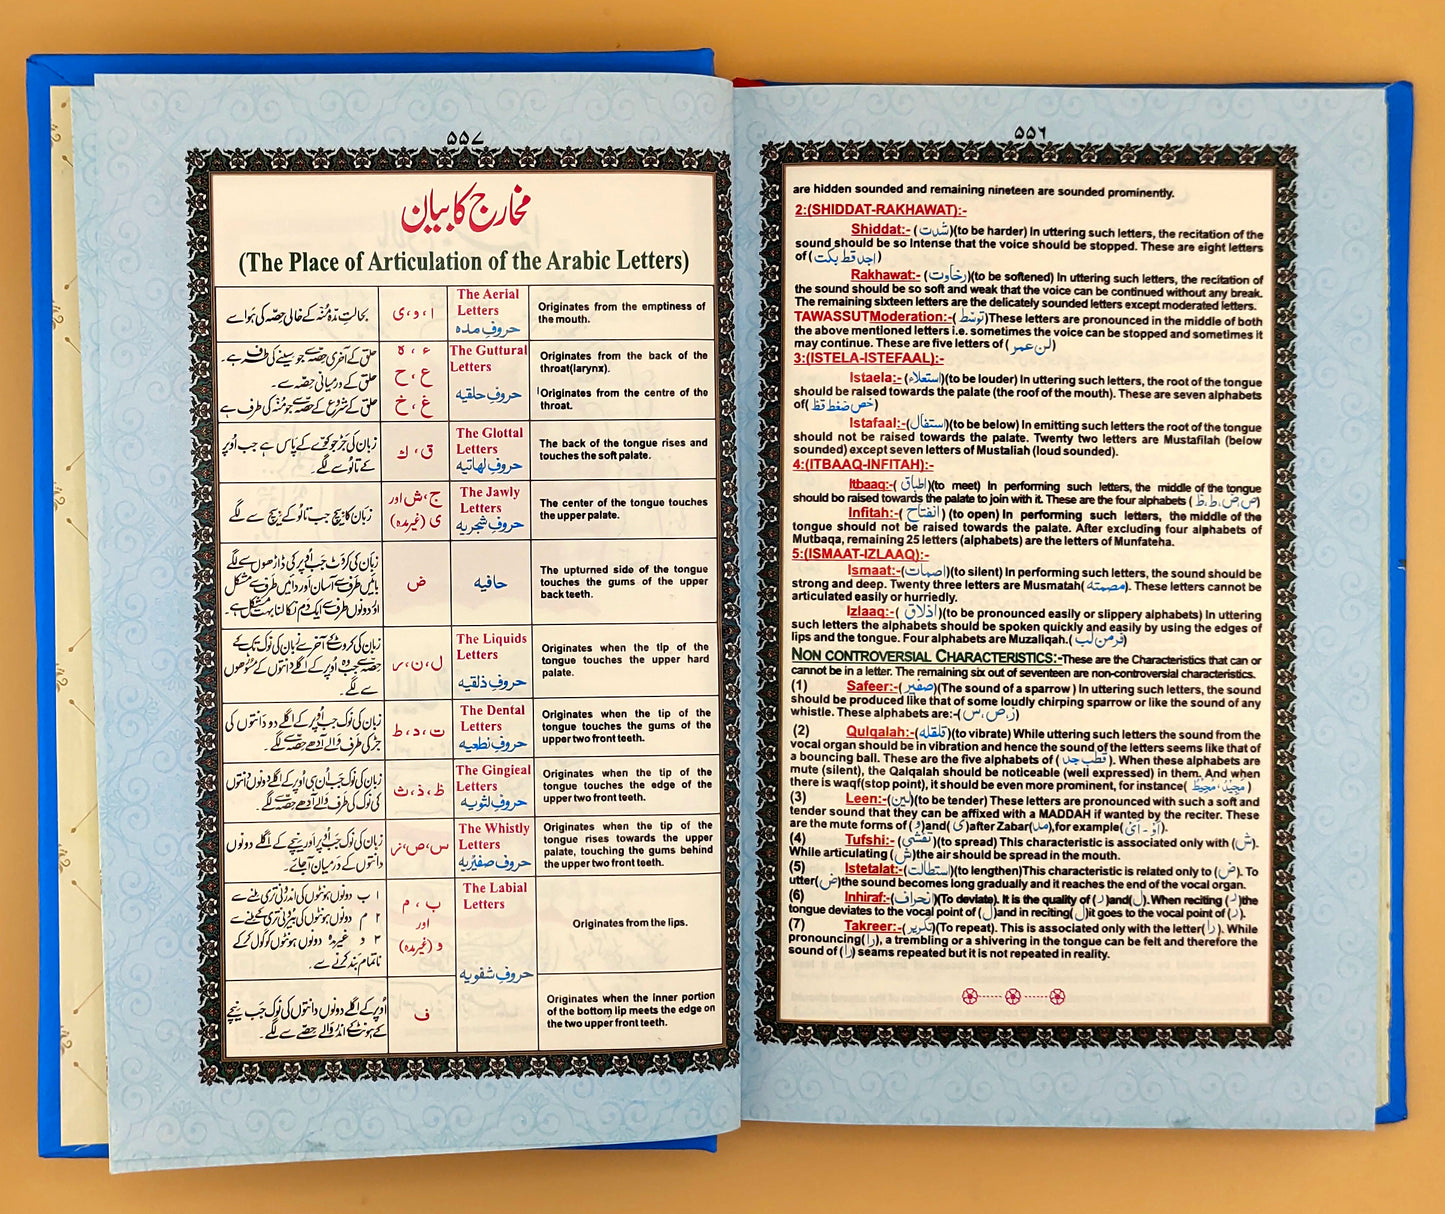 ۵۵۶
are hidden sounded and remaining nineteen are sounded prominently.
2:(SHIDDAT-RAKHAWAT):-
Shiddat:- (شدت)(to be harder) In uttering such letters, the recitation of the
sound should be so Intense that the voice should be stopped. These are eight letters
of (اجد قط بکت)
Rakhawat:- (رخاوت)(to be softened) In uttering such letters, the recitation of
the sound should be so soft and weak that the voice can be continued without any break.
The remaining sixteen letters are the delicately sounded letters except moderated letters.
TAWASSUTModeration:-(توسّط)These letters are pronounced in the middle of both
the above mentioned letters i.e. sometimes the voice can be stopped and sometimes it
may continue. These are five letters of (لن عمر)
3:(ISTELA-ISTEFAAL):-
Istaela:- (استعلاء)(to be louder) In uttering such letters, the root of the tongue
should be raised towards the palate (the roof of the mouth). These are seven alphabets
of(خص ضغط قظ)
Istafaal:-(استفال)(to be below) In emitting such letters the root of the tongue
should not be raised towards the palate. Twenty two letters are Mustafilah (below
sounded) except seven letters of Mustaliah (loud sounded).
4:(ITBAAQ-INFITAH):-
Itbaaq:-( اطباق)(to meet) In performing such letters, the middle of the tongue
should bo raised towards the palate to join with it. These are the four alphabets (ص،ض،ط،ظ)
Infitah:- (انفتاح) (to open) In performing such letters, the middle of the
tongue should not be raised towards the palate. After excluding four alphabets of
Mutbaqa, remaining 25 letters (alphabets) are the letters of Munfateha.
5:(ISMAAT-IZLAAQ):-
Ismaat:-(اصمات)(to silent) In performing such letters, the sound should be
strong and deep. Twenty three letters are Musmatah(مصمتہ). These letters cannot be
articulated easily or hurriedly.
Izlaaq:-( اذلاق)(to be pronounced easily or slippery alphabets) In uttering
such letters the alphabets should be spoken quickly and easily by using the edges of
lips and the tongue. Four alphabets are Muzaliqah.(فرمن لب)
NON CONTROVERSIAL CHARACTERISTICS:-These are the Characteristics that can or
cannot be in a letter. The remaining six out of seventeen are non-controversial characteristics.
(1) Safeer:-(صفیر)(The sound of a sparrow ) In uttering such letters, the sound
should be produced like that of some loudly chirping sparrow or like the sound of any
whistle. These alphabets are:-(ز،ص،س)
(2) Qulqalah:-(قلقلہ)(to vibrate) While uttering such letters the sound from the
vocal organ should be in vibration and hence the sound of the letters seems like that of
a bouncing ball. These are the five alphabets of ( قطب جد). When these alphabets are
mute (silent), the Qalqalah should be noticeable (well expressed) in them. And when
there is waqf(stop point), it should be even more prominent, for instance( مجید، محیط)
(3) Leen:-(لین)(to be tender) These letters are pronounced with such a soft and
tender sound that they can be affixed with a MADDAH if wanted by the reciter. These
are the mute forms of (و)and(ی)after Zabar(مد),for example(اَوْ - اَیْ).
(4) Tufshi:- (تفشّی)(to spread) This characteristic is associated only with (ش).
While articulating (ش)the air should be spread in the mouth.
(5) Istetalat:-(استطالت)(to lengthen)This characteristic is related only to (ض). To
utter(ض)the sound becomes long gradually and it reaches the end of the vocal organ.
(6) Inhiraf:-(انحراف)(To deviate). It is the quality of (ر)and(ل). When reciting (ر)the
tongue deviates to the vocal point of (ل)and in reciting(ل)it goes to the vocal point of (ر).
(7) Takreer:-(تکریر)(To repeat). This is associated only with the letter(را). While
pronouncing(را), a trembling or a shivering in the tongue can be felt and therefore the
sound of (را) seams repeated but it is not repeated in reality.
۵۵۷
مخارج کا بیان
(The Place of Articulation of the Arabic Letters)
بحالتِ مدہ مُنہ کے خالی حصّہ کی ہَوا سے
ا، و، ی
The Aerial
Letters
حروفِ مدہ
Originates from the emptiness of
the mouth.
حلق کے آخری حصّے جو سینے کی طرف ہے۔
حلق کے درمیانی حِصّہ سے۔
حلق کے شروع کے حصّے جو مُنہ کی طرف ہے
ء، ہ
ع، ح
غ، خ
The Guttural
Letters
حروفِ حلقیہ
Originates from the back of the
throat(larynx).
Originates from the centre of the
throat.
زبان کی جَڑ جو کوّے کے پاس ہے جب اُوپر
کے تالُو سے لگے۔
ق، ك
The Glottal
Letters
حروفِ لھاتیہ
The back of the tongue rises and
touches the soft palate.
زبان کا بِیچ جب تالُو کے بِیچ سے لگے
ج، ش اور
ی (غیر مدہ)
The Jawly
Letters
حروفِ شجریہ
The center of the tongue touches
the upper palate.
زبان کی کروَٹ جَب اُوپر کی ڈاڑھوں سے لگے
بائیں طرف سے آسان اور دائیں طرف سے مشکل
اور دونوں طرف سے ایک دَم نکالنا بہت مشکل ہے۔
ض
حافیہ
The upturned side of the tongue
touches the gums of the upper
back teeth.
زبان کی کروٹ کے آخر سے زبان کی نوک تک کے
حصّے جب وہ اُوپر کے اگلے دانتوں کے مَسُوڑھوں
سے لگے۔
ل، ن، ر
The Liquids
Letters
حروفِ ذلقیہ
Originates when the tip of the
tongue touches the upper hard
palate.
زبان کی نوک جَب اُوپر کے اگلے دو دانتوں کی
جڑ کی طَرف والے آدھے حصّے سے لگے۔
ت، د، ط
The Dental
Letters
حروفِ نطعیہ
Originates when the tip of the
tongue touches the gums of the
upper two front teeth.
زبان کی نوک جَب اُن ہی اُوپر کے اگلے دونوں دانتوں
کی نوک کی طرف والے آدھے حِصّے سے لگے۔
ظ، ذ، ث
The Gingieal
Letters
حروفِ لثویہ
Originates when the tip of the
tongue touches the edge of the
upper two front teeth.
زبان کی نوک جَب اُوپر اور نیچے کے اگلے دونوں
دانتوں کے درمیان آجائے۔
س، ص، ز
The Whistly
Letters
حروفِ صفیریہ
Originates when the tip of the
tongue rises towards the upper
palate, touching the gums behind
the upper two front teeth.
۱ ب دونوں ہونٹوں کی اندرُونی تری ملنے سے
۲ م دونوں ہونٹوں کی بیرُونی تری ملنے سے
۳ و غیر مدہ دونوں ہونٹوں کو گول کر کے
ناتمام بَند کرنے سے۔
ب، م
اور
و (غیر مدہ)
The Labial
Letters
حروفِ شفویہ
Originates from the lips.
اُوپر کے اگلے دونوں دانتوں کی نوک جَب نیچے
کے ہونٹ کے اندر والے حِصّے سے لگے۔
ف
Originates when the inner portion
of the bottom lip meets the edge on
the two upper front teeth.